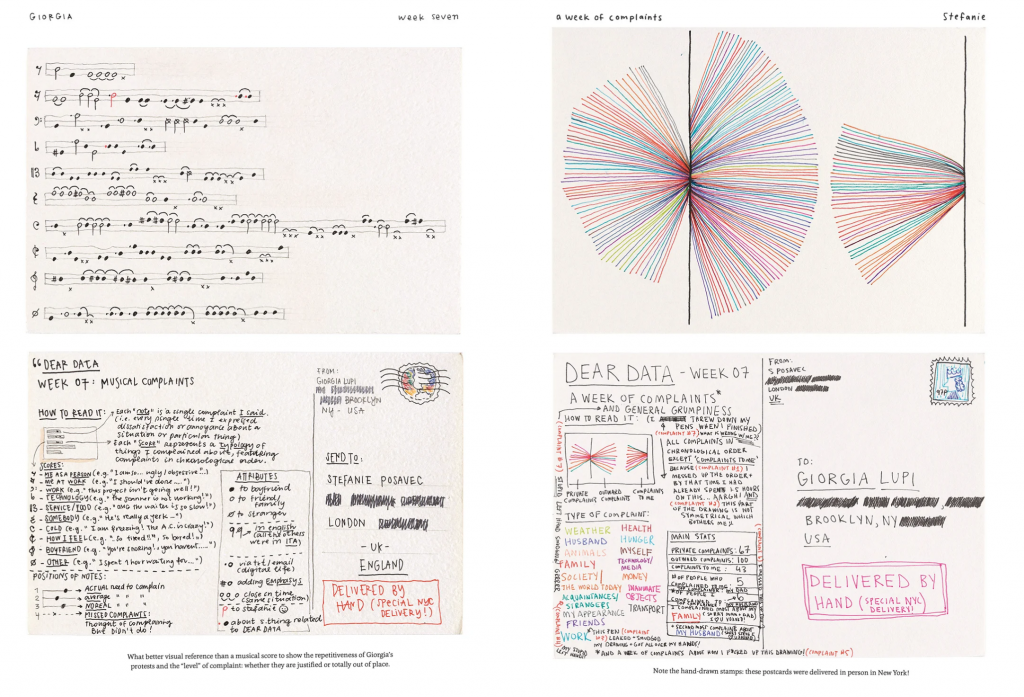 GIORGIA
week seven
a week of complaints
Stefanie
DEAR DATA
WEEK 07: MUSICAL COMPLAINTS
HOW TO READ IT:
Each "note" is a single complaint I said
(i.e. every single time I expressed
dissatisfaction or annoyance about a
situation or particular thing)
Each "score" represents a typology of
things I complained about, featuring
complaints in chronological order.
SCORES:
ME AS A PERSON (e.g. "I am so... ugly/
ME AT WORK (e.g. "I should've done....")
WORK (e.g. "this project isn't going well!")
TECHNOLOGY (e.g. "the scanner is not working!")
SERVICE/FOOD (e.g. "OMG the waiter is so slow!")
SOMEBODY (e.g. "He's really a jerk...")
COLD (e.g. "I am freezing! The A.C. is crazy!")
HOW I FEEL (e.g. "So tired!!", "so bored!")
BOYFRIEND (e.g. "you're cooking!, you haven't.....")
OTHER (e.g. "I spent 1 hour waiting for...")
POSITIONS OF NOTES:
1
2
3
4
ACTUAL need to complain
average " "
NOREAL " "
MISSED COMPLAINTS:
Thought of complaining
But didn't do!
ATTRIBUTES
to boyfriend
to friend/
family
to stranger
in english
(all the others
were in ITA)
via txt/email
(digital life)
# adding EMPHASYS
close in time
(same situation)
to stefanie
about s.thing related
to DEAR DATA
FROM:
GIORGIA LUPI
BROOKLYN
NY - USA
SEND TO:
STEFANIE POSAVEC
LONDON
- UK -
ENGLAND
DELIVERED BY
HAND (SPECIAL NYC
DELIVERY!)
What better visual reference than a musical score to show the repetitiveness of Giorgia's
protests and the "level" of complaint: whether they are justified or totally out of place.
DEAR DATA - WEEK 07
A WEEK OF COMPLAINTS*
AND GENERAL GRUMPINESS
HOW TO READ IT: (I THREW DOWN MY
4 PENS WHEN I FINISHED)
(COMPLAINT #7) WHAT IS WRONG W/ME?!
ALL COMPLAINTS IN
CHRONOLOGICAL ORDER
EXCEPT 'COMPLAINTS TO ME'
BECAUSE (COMPLAINT #1) I
MESSED UP THE ORDER +
BY THAT TIME I HAD
ALREADY SPENT 2.5 HOURS
ON THIS... AARGH! AND
THIS PART
OF THE DRAWING IS NOT
SYMMETRICAL WHICH
BOTHERS ME!
PRIVATE
COMPLAINTS
OUTWARD
COMPLAINTS
COMPLAINTS
TO ME
TYPE OF COMPLAINT:
WEATHER
HUSBAND
ANIMALS
FAMILY
SOCIETY/
THE WORLD TODAY
ACQUAINTANCES/
STRANGERS
MY APPEARANCE
FRIENDS
WORK
HEALTH
HUNGER
MYSELF
TECHNOLOGY/
MEDIA
MONEY
INANIMATE
OBJECTS
TRANSPORT
MAIN STATS
PRIVATE COMPLAINTS: 67
OUTWARD COMPLAINTS: 100
COMPLAINTS TO ME: 43
# OF PEOPLE WHO
COMPLAINED TO ME: 5
# OF PEOPLE I
COMPLAINED TO: 6
I COMPLAINED MOST ABOUT MY
FAMILY (SORRY MOM + DAD
I LOVE YOU!)
* SECOND MOST COMPLAINT ABOUT:
MY HUSBAND
*THIS PEN
LEAKED + SMUDGED
MY DRAWING + GOT ALL OVER MY HANDS!
FROM:
S POSAVEC
LONDON
UK
97P
TO:
GIORGIA LUPI
BROOKLYN, NY
USA
DELIVERED BY
HAND (SPECIAL NYC
DELIVERY!)
Note the hand-drawn stamps: these postcards were delivered in person in New York!